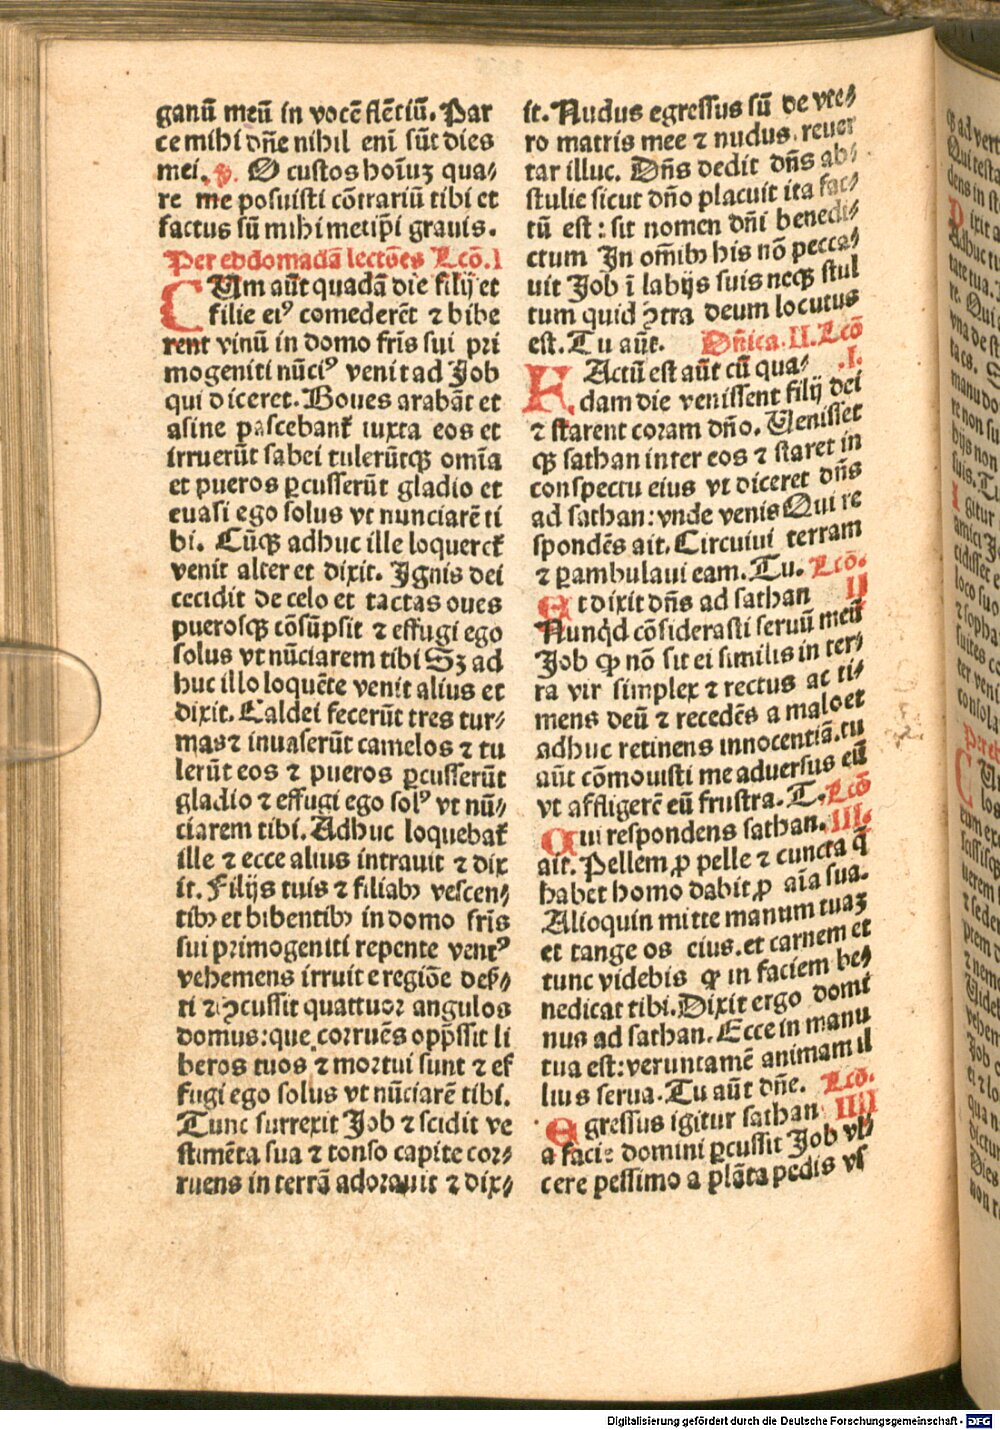 ganū meū in vocē flētiū. Par
ce mihi dn̄e nihil enī sūt dies
mei. v. O custos hoīuꝫ qua⸗
re me posuisti cōtrariū tibi et
factus sū mihi metip̄i grauis.
Per ebdomadā lectōes Lcō. I
CUm aūt quadā die filij et
filie eiꝰ comederēt ⁊ bibe
rent vinū in domo fr̄is sui pri
mogeniti nūciꝰ venit ad Job
qui diceret. Boues arabāt et
asine pascebant᷑ iuxta eos et
irruerūt sabei tulerūtqꝫ om̄ia
et pueros ꝑcusserūt gladio et
euasi ego solus vt nunciarē ti
bi. Cūqꝫ adhuc ille loqueret᷑
venit alter et dixit. Ignis dei
cecidit de celo et tactas oues
puerosqꝫ cōsūpsit ⁊ effugi ego
solus vt nūciarem tibi Sꝫ ad
huc illo loquēte venit alius et
dixit. Caldei fecerūt tres tur⸗
mas ⁊ inuaserūt camelos ⁊ tu
lerūt eos ⁊ pueros ꝑcusserūt
gladio ⁊ effugi ego solꝰ vt nū⸗
ciarem tibi. Adhuc loquebat᷑
ille ⁊ ecce alius intrauit ⁊ dix
it. Filijs tuis ⁊ filiabꝫ vescen⸗
tibꝫ et bibentibꝫ in domo fr̄is
sui primogeniti repente ventꝰ
vehemens irruit e regiōe deß⸗
ti ⁊ ꝯcussit quattuor angulos
domus: que corruēs opp̄ssit li
beros tuos ⁊ mortui sunt ⁊ ef
fugi ego solus vt nūciarē tibi.
Tunc surrexit Job ⁊ scidit ve
stimēta sua ⁊ tonso capite cor⸗
ruens in terrā adorauit ⁊ dix⸗
it. Nudus egressus sū de vte⸗
ro matris mee ⁊ nudus reuer
tar illuc. Dn̄s dedit dn̄s ab⸗
stulie sicut dn̄o placuit ita fac⸗
tū est: sit nomen dn̄i benedi⸗
ctum In om̄ibꝫ his nō pecca⸗
uit Job ī labijs suis neqꝫ stul
tum quid ꝯtra deum locutus
est. Tu aūt. Dn̄ica. II. Lcō
.I.
FActū est aūt cū qua⸗
dam die venissent filij dei
⁊ starent coram dn̄o. Uenisset
qꝫ sathan inter eos ⁊ staret in
conspectu eius vt diceret dn̄s
ad sathan: vnde venis Qui re
spondēs ait. Circuiui terram
⁊ ꝑambulaui eam. Tu. Lcō.
II
Et dixit dn̄s ad sathan
Nunqd̄ cōsiderasti seruū meū
Job ꝙ nō sit ei similis in ter⸗
ra vir simplex ⁊ rectus ac ti⸗
mens deū ⁊ recedēs a malo et
adhuc retinens innocentiā. tu
aūt cōmouisti me aduersus eū
vt affligerē eū frustra. T. Lcō
III.
Qui respondens sathan.
ait. Pellem ꝓ pelle ⁊ cuncta q̄
habet homo dabit ꝓ aīa sua.
Alioquin mitte manum tuaꝫ
et tange os eius. et carnem et
tunc videbis ꝙ in faciem be⸗
nedicat tibi. Dixit ergo domi
nus ad sathan. Ecce in manu
tua est: veruntamē animam il
lius serua. Tu aūt dn̄e. Lcō.
IIII
Egressus igitur sathan
a facie domini ꝑcussit Job vl⸗
cere pessimo a plāta pedis vs
Digitalisierung gefördert durch die Deutsche Forschungsgemeinschaft - DFG